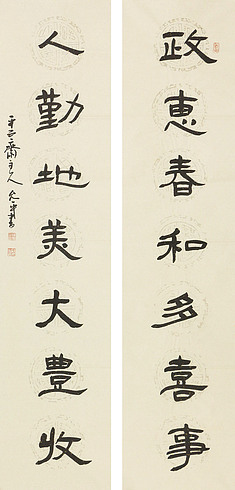 政恵春和多喜事
人勤地美大豊收